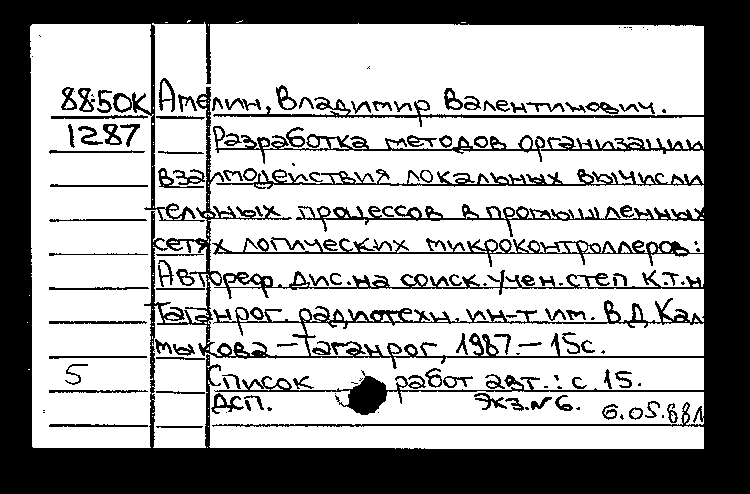 88.50К Амелин, Владимир Валентинович.
1287 Разработка методов организации
взаимодействия локальных вычисли
тельных процессов в промышленных
сетях логических микроконтроллеров:
Автореф. дис. на соиск. учен. степ. к.т.н
Таганрог. радиотехн. ин-т им. В.Д. Кал-
мыкова. – Таганрог, 1987. – 15с.
5 Список работ авт.: с. 15.
ДСП. Экз. №6. 6.05.88